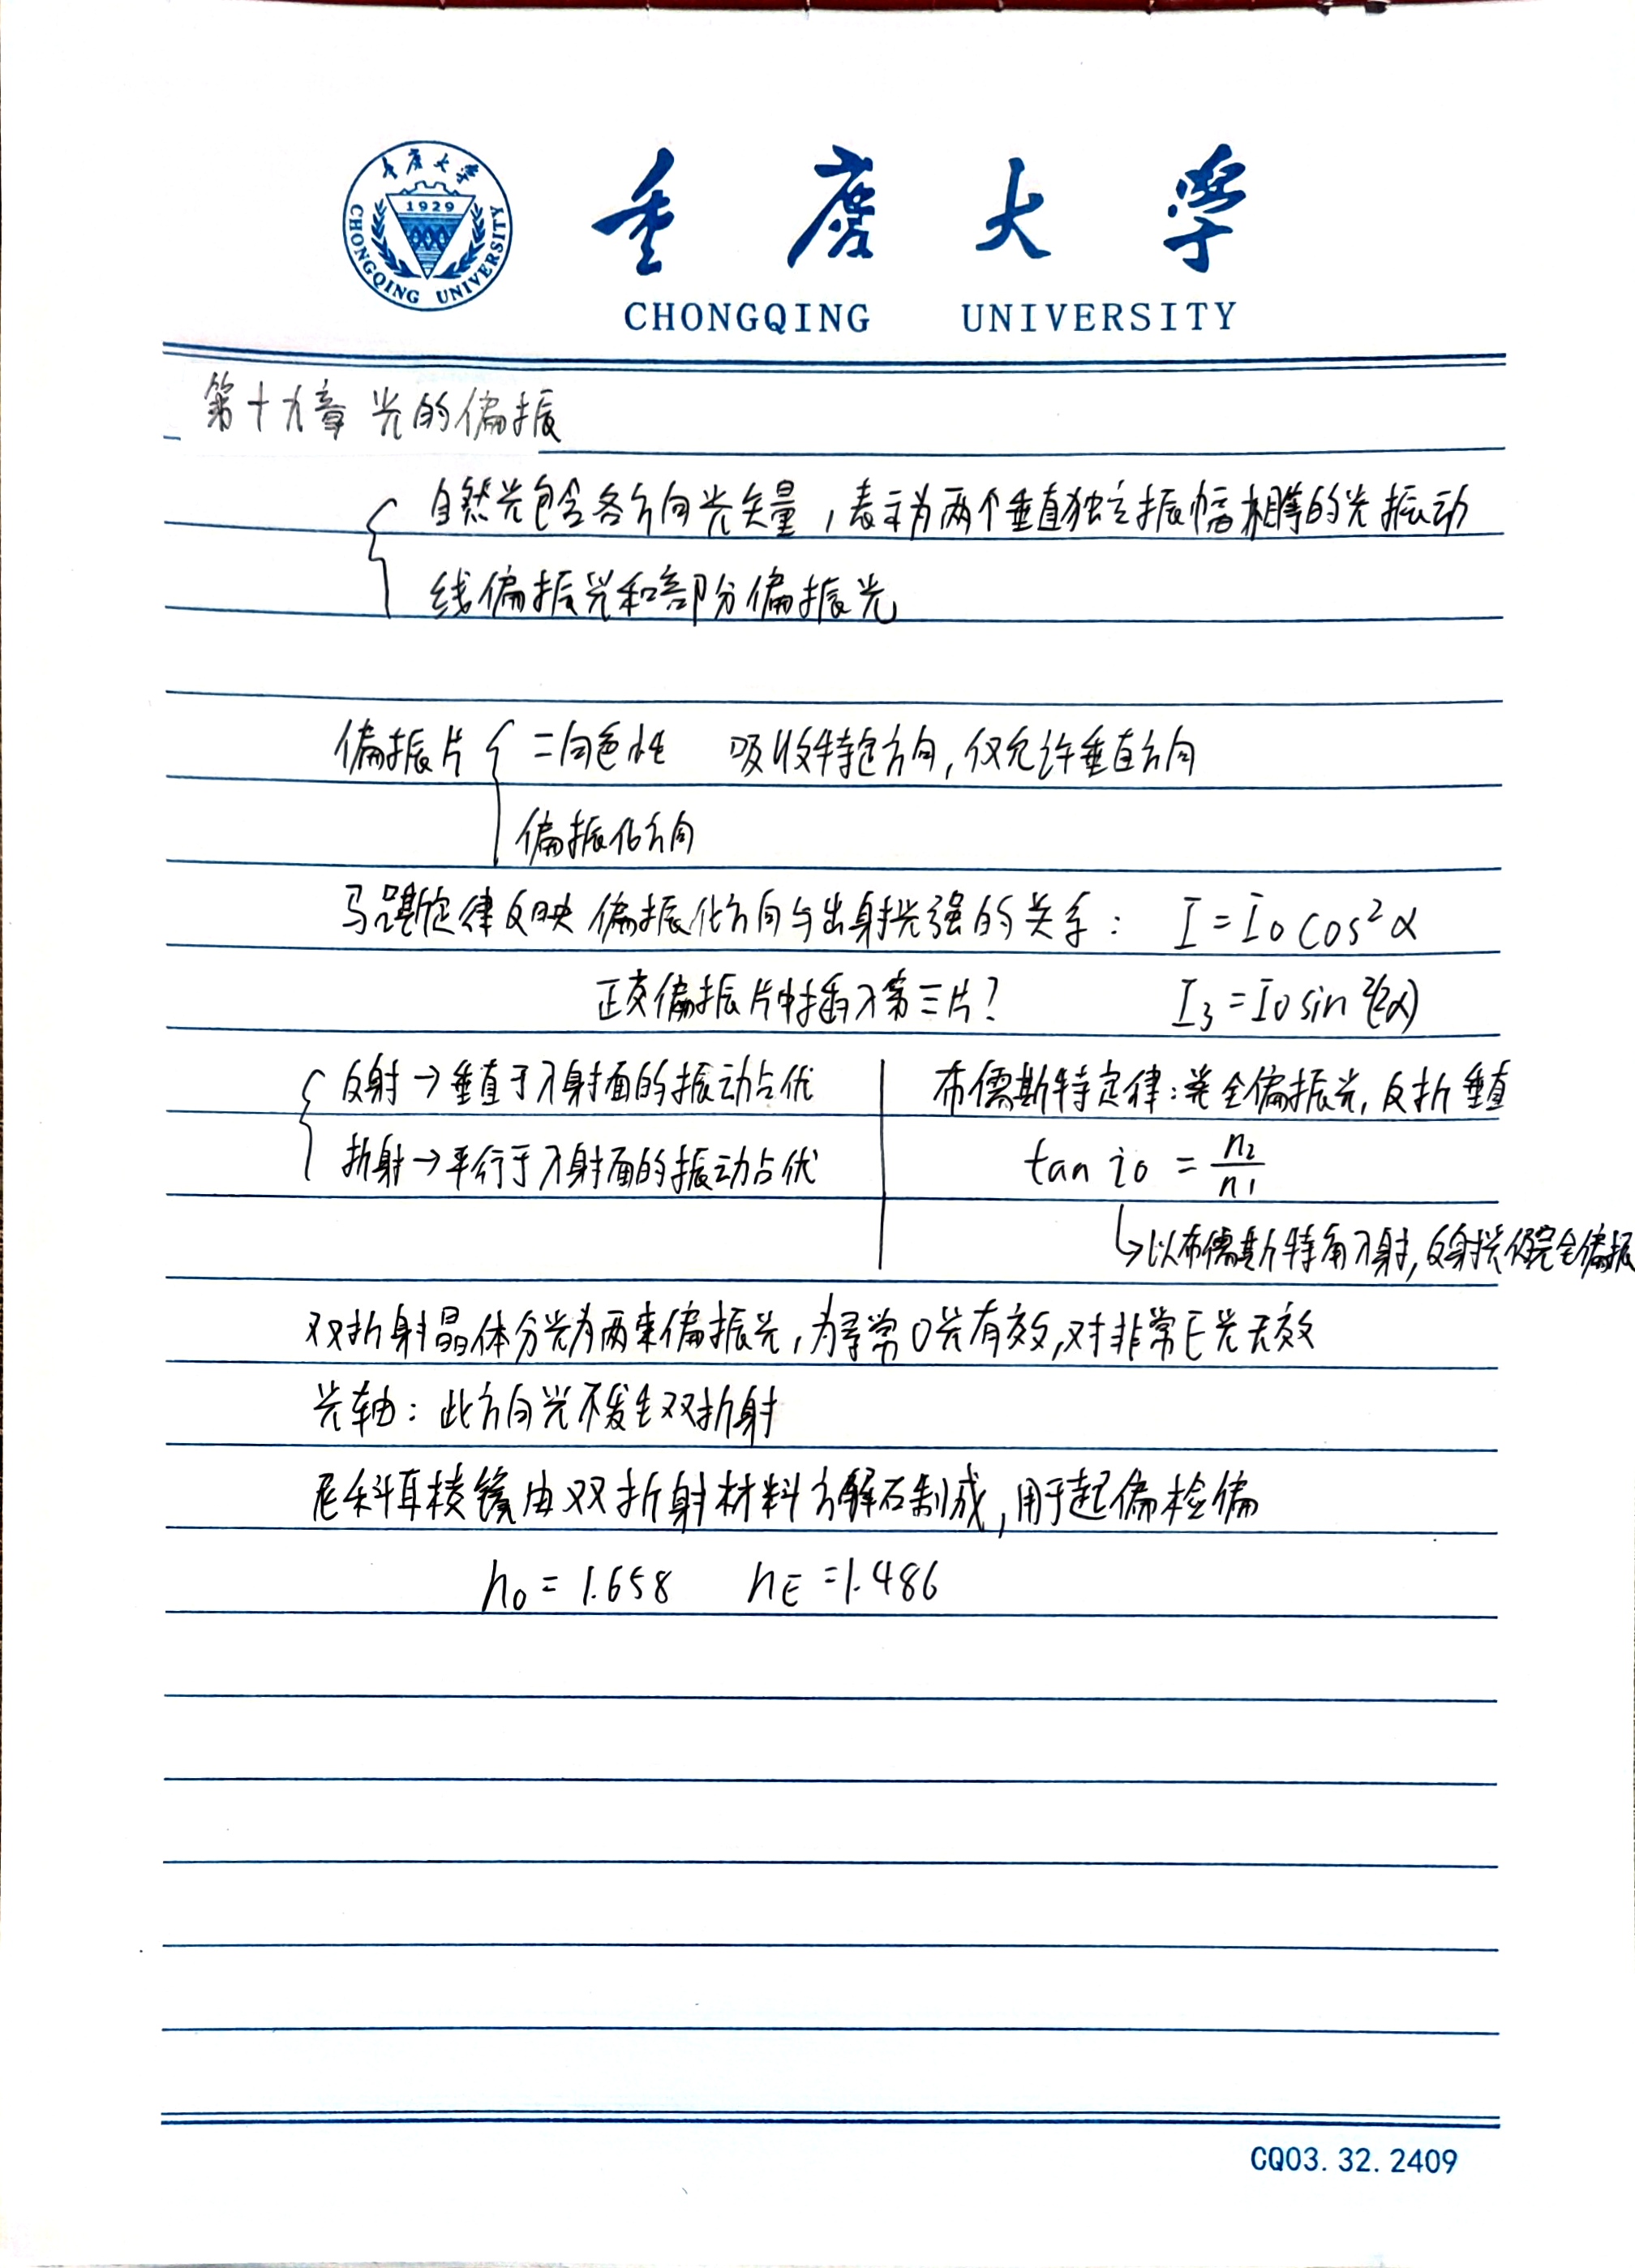 重庆大学
1929
CHONGQING UNIVERSITY
重庆大学
CHONGQING UNIVERSITY
第十九章 光的偏振
自然光包含各方向光矢量,表示为两个垂直独立振幅相等的光振动
线偏振光和部分偏振光
偏振片 { 二向色性 吸收特定方向,仅允许垂直方向
偏振化方向
马吕斯定律反映偏振化方向与出射光强的关系: I = I₀ cos²α
正交偏振片中插入第三片? I₃ = I₀ sin²(2α)
反射→垂直于入射面的振动占优
折射→平行于入射面的振动占优
布儒斯特定律:完全偏振光,反折垂直
tan i₀ = n₂/n₁
↳以布儒斯特角入射,反射光仅完全偏振
双折射晶体分光为两束偏振光,为寻常O光有效,对非常E光无效
光轴:此方向光不发生双折射
尼科耳棱镜由双折射材料方解石制成,用于起偏检偏
n₀ = 1.658 n_E = 1.486
CQ03.32.2409